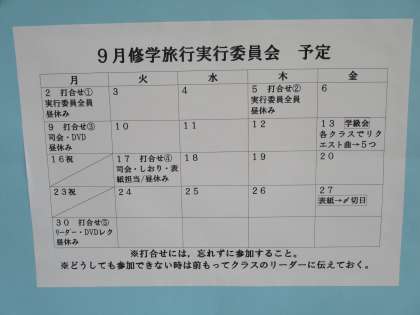 9月修学旅行実行委員会 予定
月 火 水 木 金
2 打合せ① 3 4 5 打合せ② 6
実行委員全員 実行委員全員
昼休み 昼休み
9 打合せ③ 10 11 12 13 学級会
司会・DVD 各クラスでリク
昼休み エスト曲→5つ
16祝 17 打合せ④ 18 19 20
司会・しおり・表
紙担当/昼休み
23祝 24 25 26 27
表紙→〆切日
30 打合せ⑤
リーダー・DVDレク
昼休み
※打合せには,忘れずに参加すること。
※どうしても参加できない時は前もってクラスのリーダーに伝えておく。